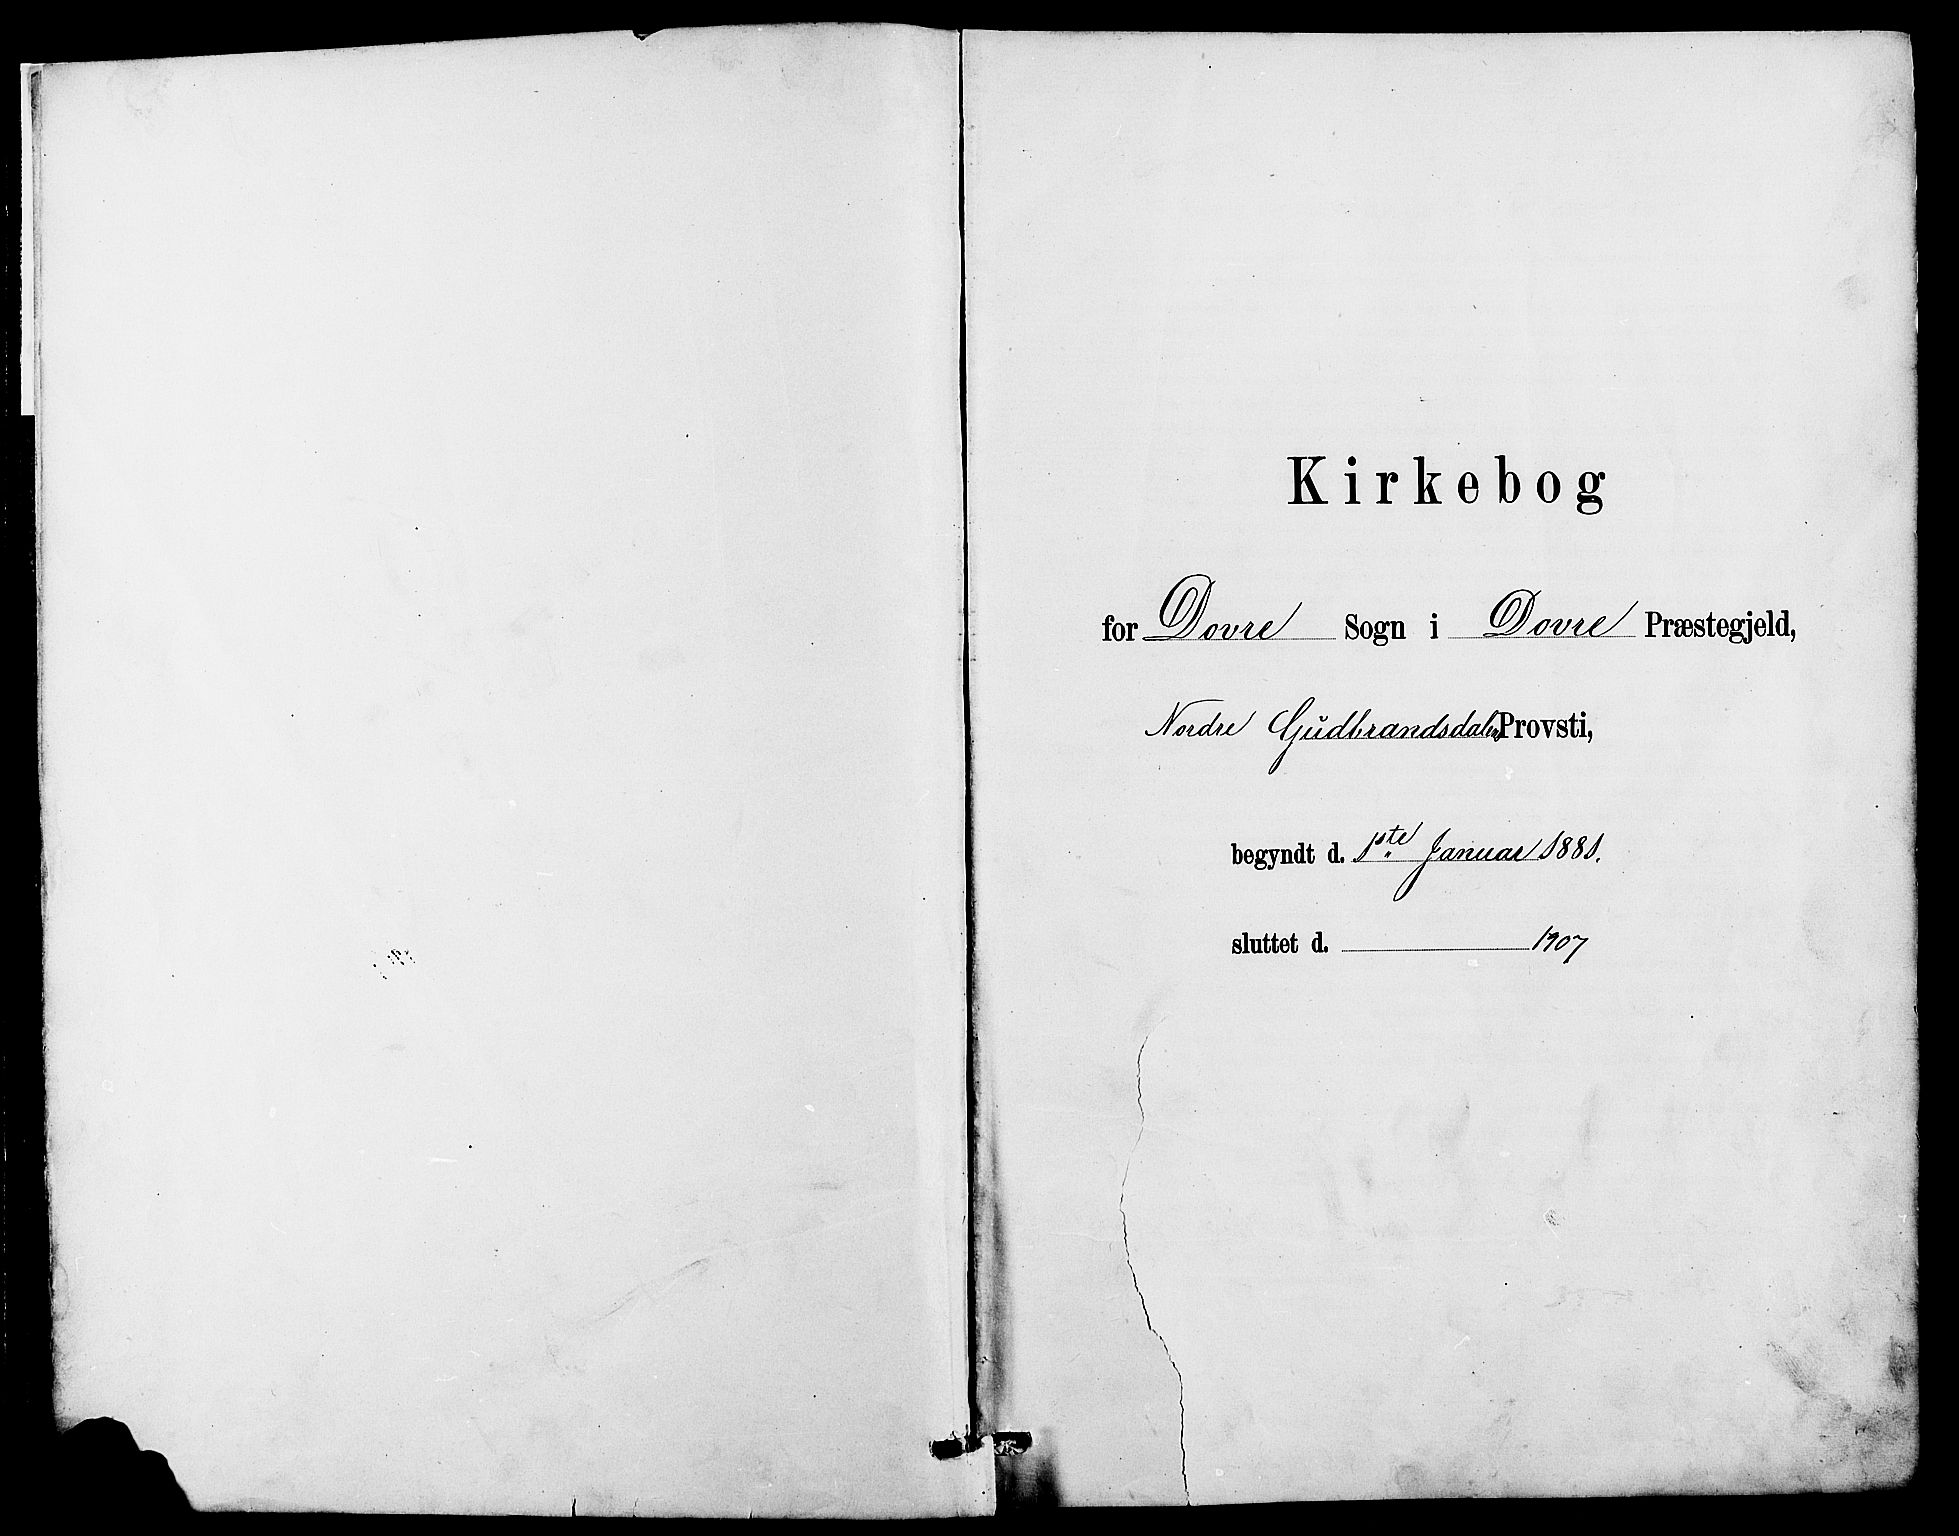 Kirkebog
for Dovre Sogn i Dovre Præstegjeld,
Nordre Gudbrandsdalens Provsti,
begyndt d. 1ste Januar 1881.
sluttet d. 1907